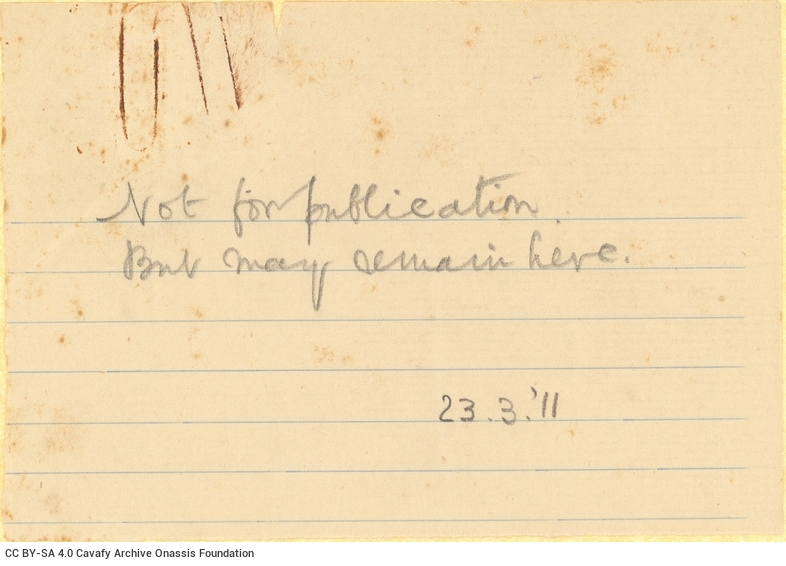 Not for publication
But may remain here.
23.3.'11
CC BY-SA 4.0 Cavafy Archive Onassis Foundation